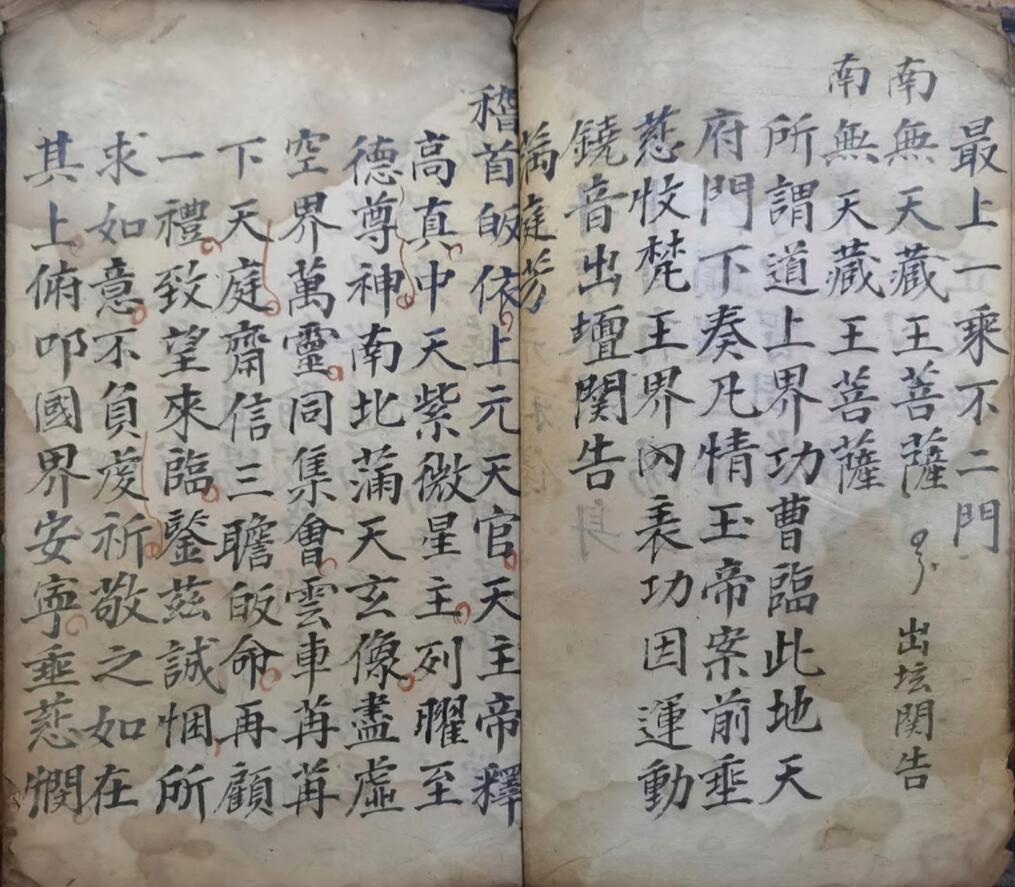 最上一乘不二門
南無天藏王菩薩
出坛関告
南無天藏王菩薩
所謂道上界功曹臨此地天
府門下奏凡情玉帝案前垂
慈㤆梵王界內裘功因運動
鐃音出壇関告
滿庭芳
稽首皈依上元天官天主帝釋
高真中天紫微星主列曜至
德尊神南北蒲天玄像盡虛
空界萬靈同集會雲車苒苒
下天庭齋信三瞻皈命再顧
一禮致望來臨鑒茲誠悃所
求如意不負虔祈敬之如在
其上俯叩國界安寧垂慈憫